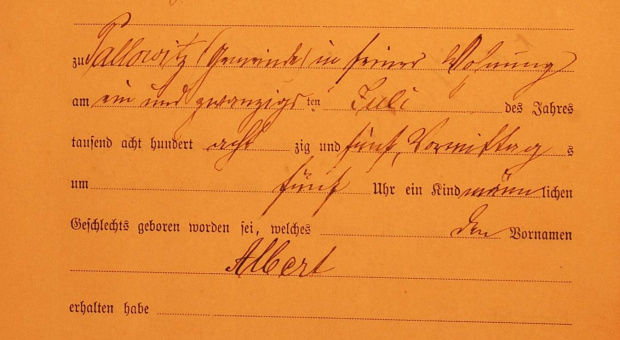 zu Pallowitz (Gemeinde) in seiner Wohnung
am ein und zwanzigs ten Juli des Jahres
tausend acht hundert acht zig und fünf, Vormittag s
um fünf Uhr ein Kind männ lichen
Geschlechts geboren worden sei, welches den Vornamen
Albert
erhalten habe